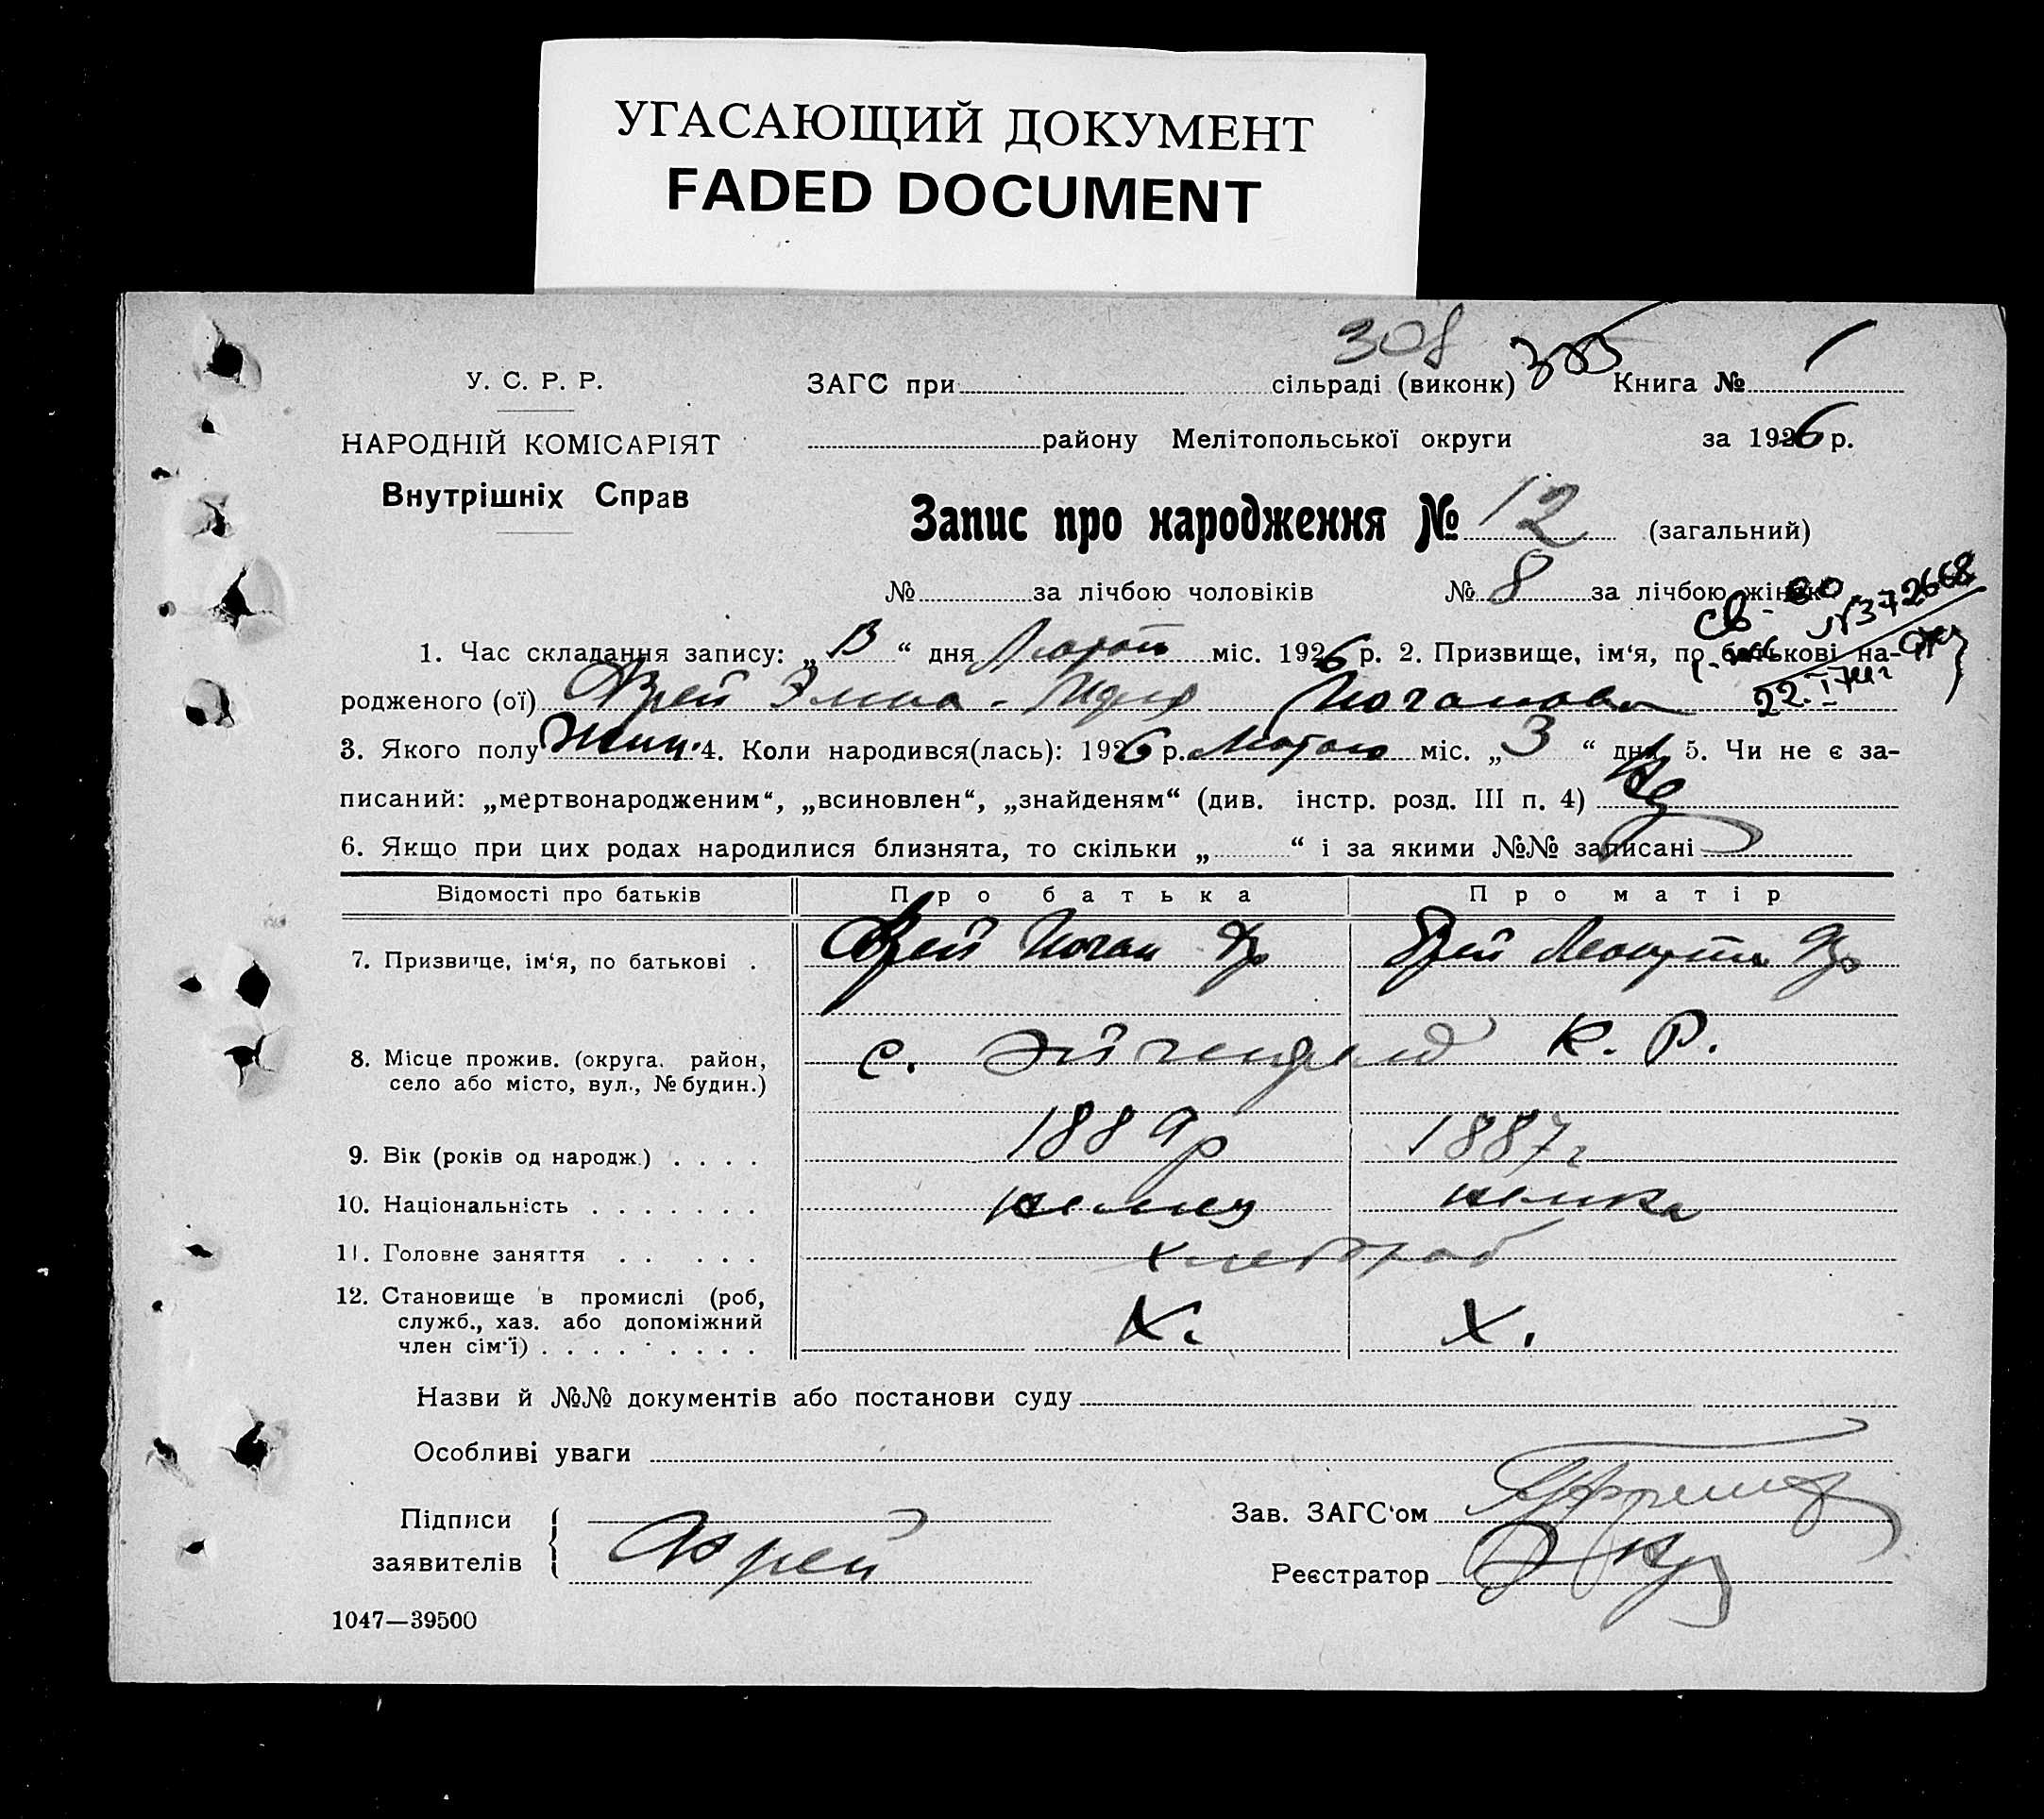 УГАСАЮЩИЙ ДОКУМЕНТ
FADED DOCUMENT
308
У. С. Р. Р.
ЗАГС при сільраді (виконк) Книга №
НАРОДНІЙ КОМІСАРІЯТ
району Мелітопольської округи за 1926 р.
Внутрішніх Справ
Запис про народження № 12 (загальний)
№ за лічбою чоловіків № 8 за лічбою жінок
№372668
1. Час складання запису: „ “ дня міс. 1926 р. 2. Призвище, ім‘я, по батькові на-
22.
родженого (ої) Фрей Элма - Ида Иоганова
3. Якого полу Жин. 4. Коли народився(лась): 1926 р. Лютого міс. „3 “ дня 5. Чи не є за-
писаний: „мертвонародженим“, „всиновлен“, „знайденям“ (див. інстр. розд. III п. 4)
6. Якщо при цих родах народилися близнята, то скільки „ “ і за якими №№ записані
Відомості про батьків Про батька Про матір
7. Призвище, ім‘я, по батькові . Фрей Иоган Фрей
8. Місце прожив. (округа, район, с. К. Р.
село або місто, вул., № будин.)
9. Вік (років од народж.) . . . . 1889р 1887г
10. Національність . . . . . . . немец немка
11. Головне заняття . . . . . хлебороб
12. Становище в промислі (роб, Х. Х.
служб., хаз. або допоміжний
член сім‘ї) . . . . . . . . .
Назви й №№ документів або постанови суду
Особливі уваги
Підписи
заявителів Фрей
Зав. ЗАГС‘ом
Реєстратор
1047—39500